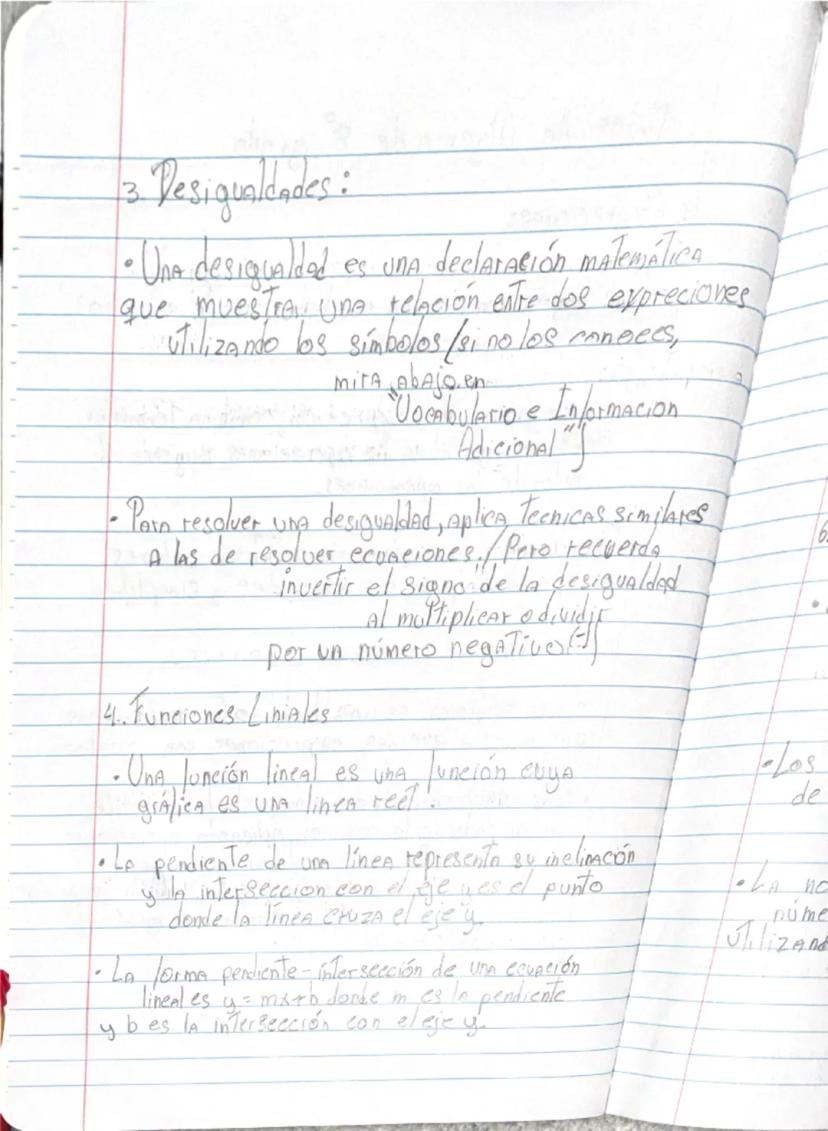 3. Desigualdades:
• Una desigualdad es una declaración matemática
que muestra una relación entre dos expreciones
utilizando los símbolos/si no los conoces,
mira abajo en
"Vocabulario e Informacion
Adicional"/
• Para resolver una desigualdad, aplica tecnicas similares
a las de resolver ecuaciones./Pero recuerda
invertir el signo de la desigualdad
al multiplicar o dividir
por un número negativo (-)/
4. Funciones Liniales
• Una función lineal es una función cuya
gráfica es una linea
• La pendiente de una línea representa su inclinación
y la interseccion con el eje y es el punto
donde la línea cruza el eje y.
• La forma pendiente-intersección de una ecuación
lineal es y = mx+b donde m es la pendiente
y b es la intersección con el eje y.
6.
• Los
de
• La no
núme
utilizand